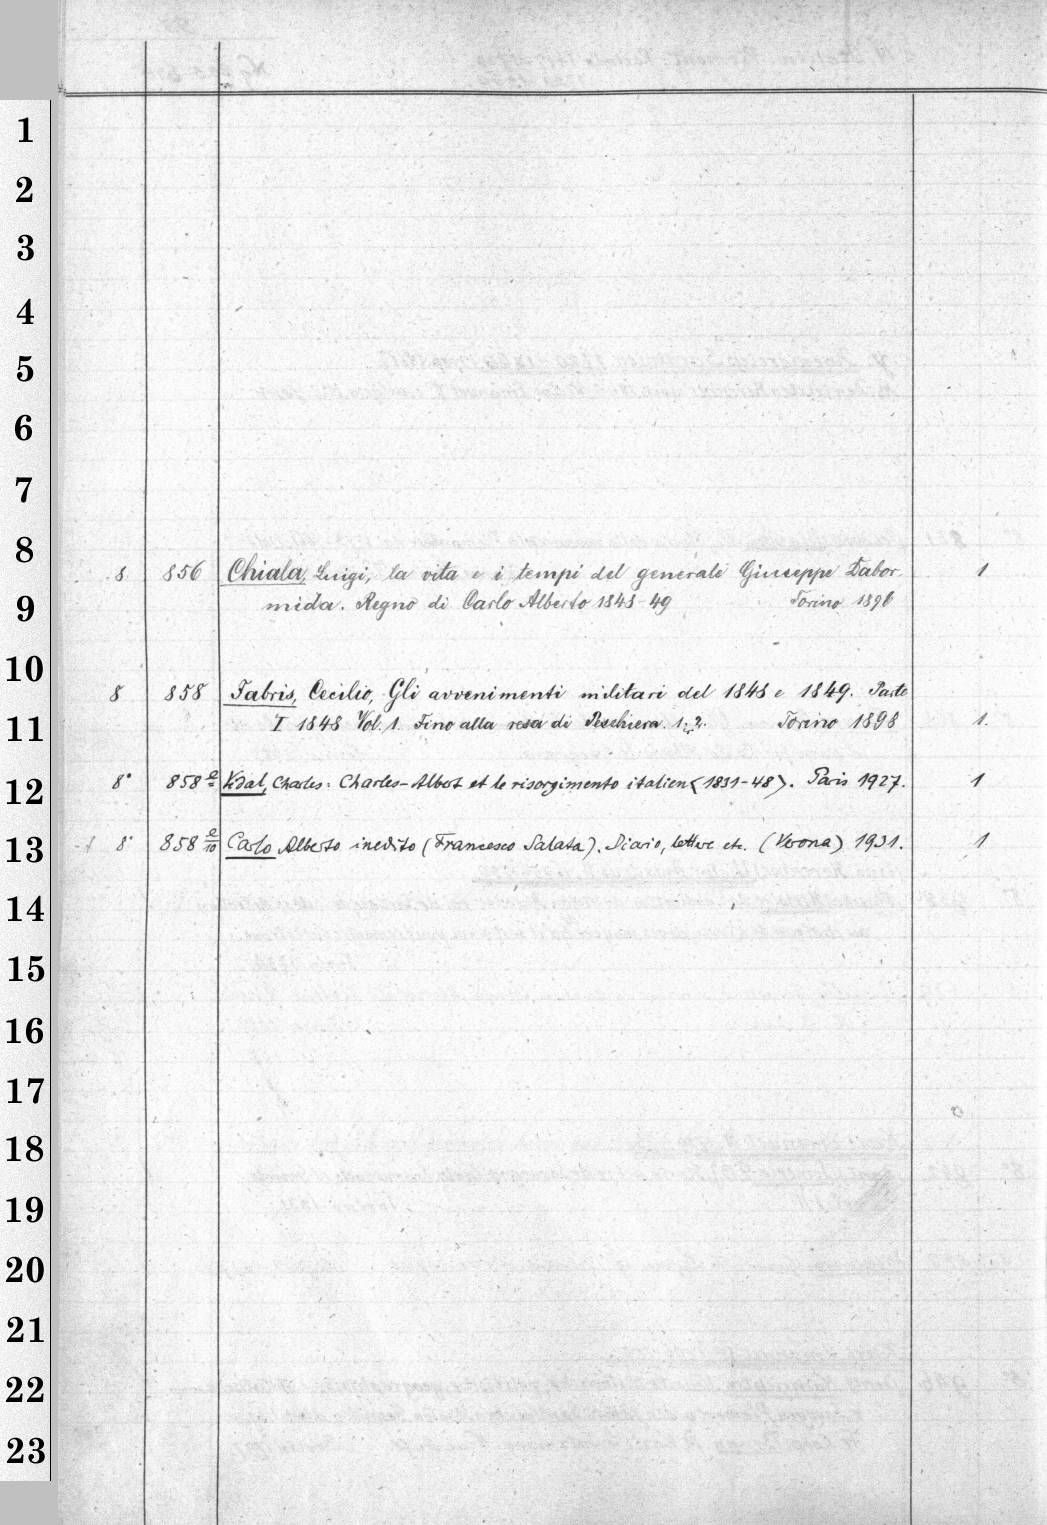 1
2
3
4
5
6
7
8
8 856 Chiala, Luigi, la vita e i tempi del generale Giuseppe Dabor- 1
9 mida. Regno di Carlo Alberto 1848-49 Torino 1896
10
8 858 Fabris, Cecilio, Gli avvenimenti militari del 1848 e 1849. Parte
11 I 1848 Vol. 1. Fino alla resa di Peschiera 1. 2. Torino 1898 1.
12 8° 858 a Vidal, Charles: Charles-Albert et le risorgimento italien (1831-48). Paris 1927. 1
13 8° 858 a/10 Carlo Alberto inedito (Francesco Salata). Diario, lettere etc. (Verona) 1931. 1
14
15
16
17
18
19
20
21
22
23